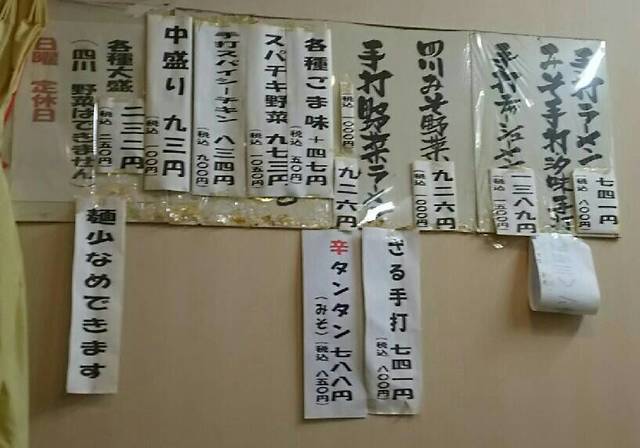 手打ラーメン
みそ手打
七四一円
(税込 八〇〇円)
一三八九円
四川みそ野菜
九二六円
(税込 一〇〇〇円)
手打野菜ラーメン
九二六円
(税込 一〇〇〇円)
各種ごま味 +四七円
(税込 五〇円)
スパチキ野菜 九七三円
(税込 一〇五〇円)
手打スパイシーチキン 八三四円
(税込 九〇〇円)
中盛り 九三円
(税込 一〇〇円)
各種大盛 二三二円
(税込 二五〇円)
(四川 野菜はできません)
日曜 定休日
ざる手打 七四一円
(税込 八〇〇円)
辛タンタン 七八八円
(みそ) (税込 八五〇円)
麺少なめできます